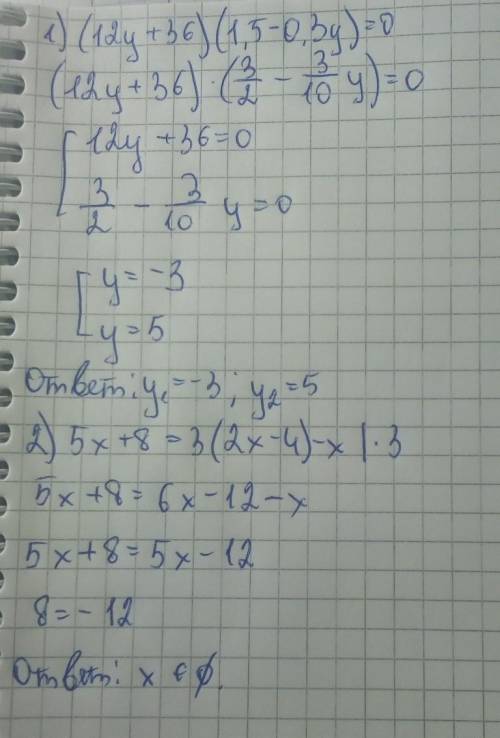 1) (12y+36)(1,5-0,3y)=0
(12y+36)·(3/2 - 3/10 y)=0
[12y+36=0
3/2 - 3/10 y=0
[y=-3
y=5
Ответ: y₁=-3; y₂=5
2) 5x+8=3(2x-4)-x |·3
5x+8=6x-12-x
5x+8=5x-12
8=-12
Ответ: x∈∅.